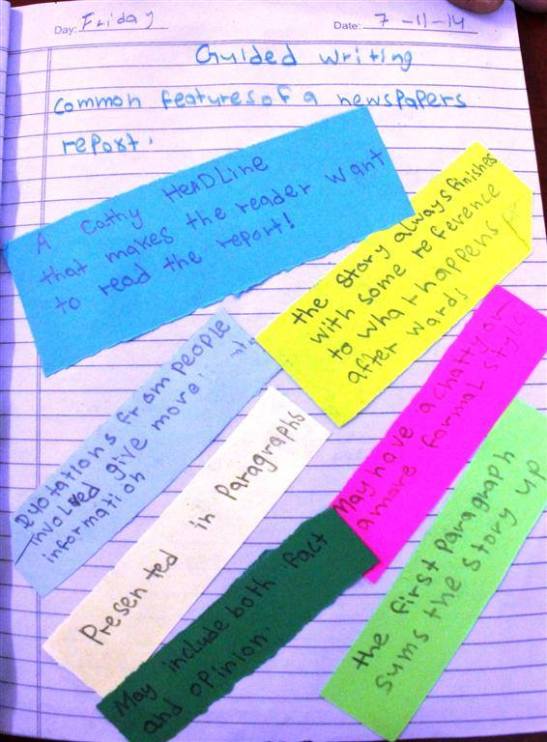 Day: Friday
Date: 7-11-14
Guided writing
Common features of a newspapers
report.
A Cathy HeaDLine
that makes the reader want
to read the report!
the story always finishes
with some reference
to what happens
after wards
Quotations from people
involved give more
information
Presented in Paragraphs
May have a chatty or
a more formal style
May include both fact
and opinion.
the first paragraph
sums the story up